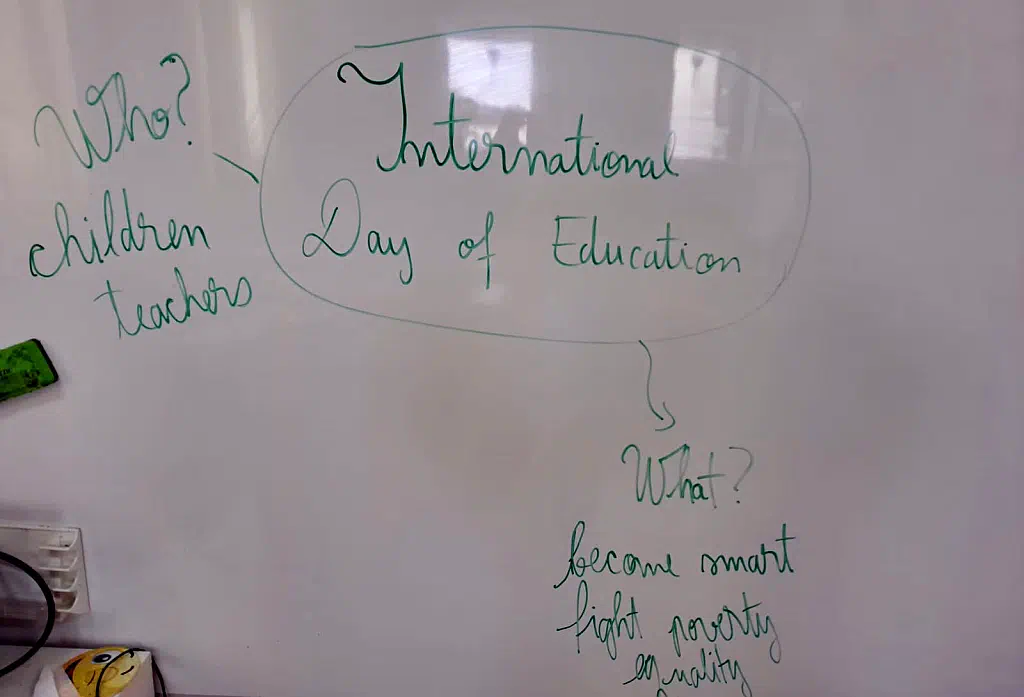 Who?
children
teachers
International
Day of Education
What?
become smart
fight poverty
equality